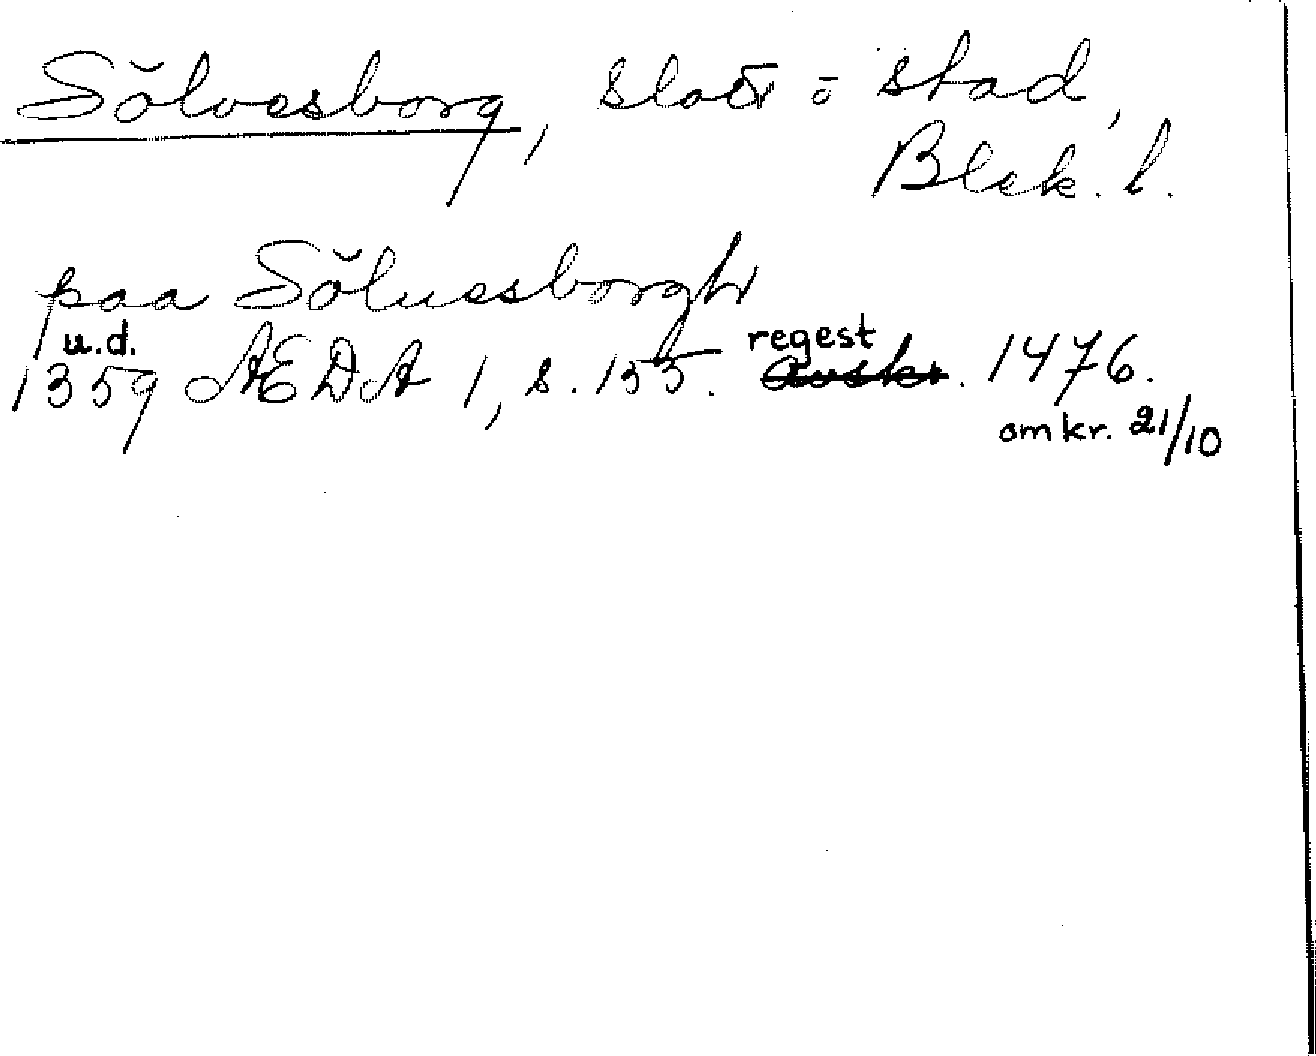 Sölvesborg, slott o stad,
Blek. l.
paa Söluesborgh
u.d. regest
1359 ÆDA 1, s. 155. Avskr. 1476.
omkr. 21/10